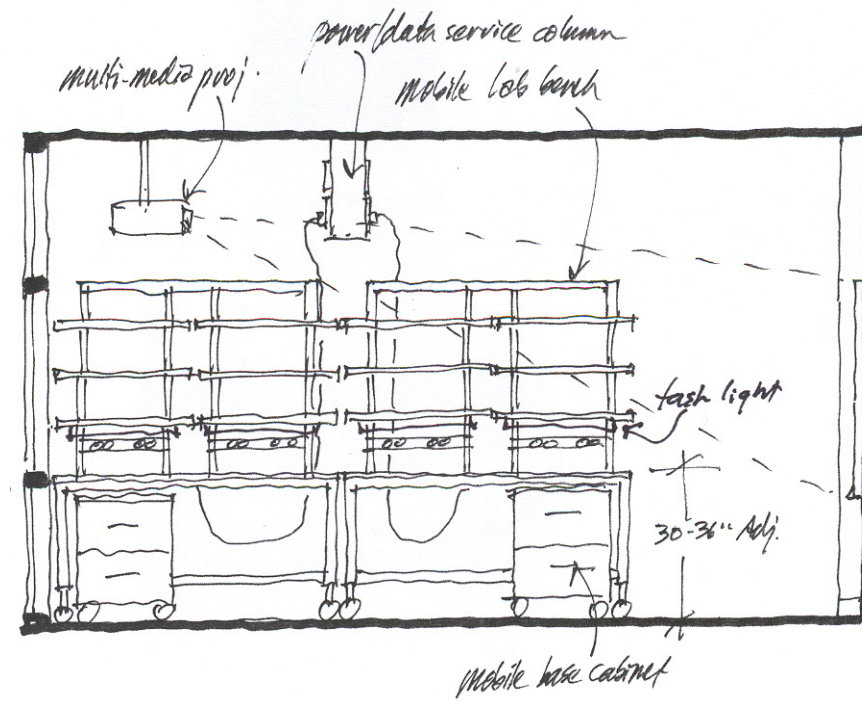 power/data service column
multi-media proj.
mobile lab bench
task light
30-36" Adj.
mobile base cabinet